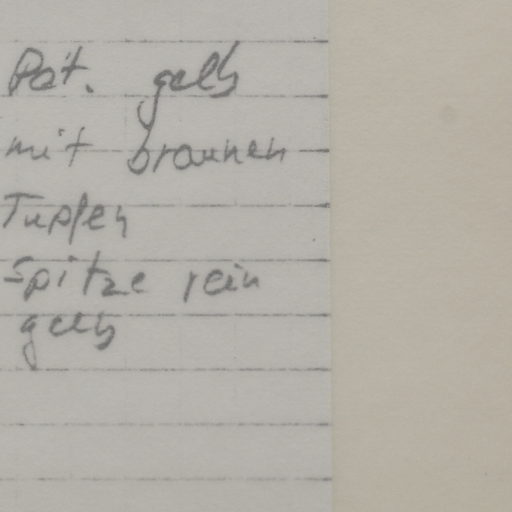 Pat. gelb
mit braunen
Tupfen
Spitze rein
gelb